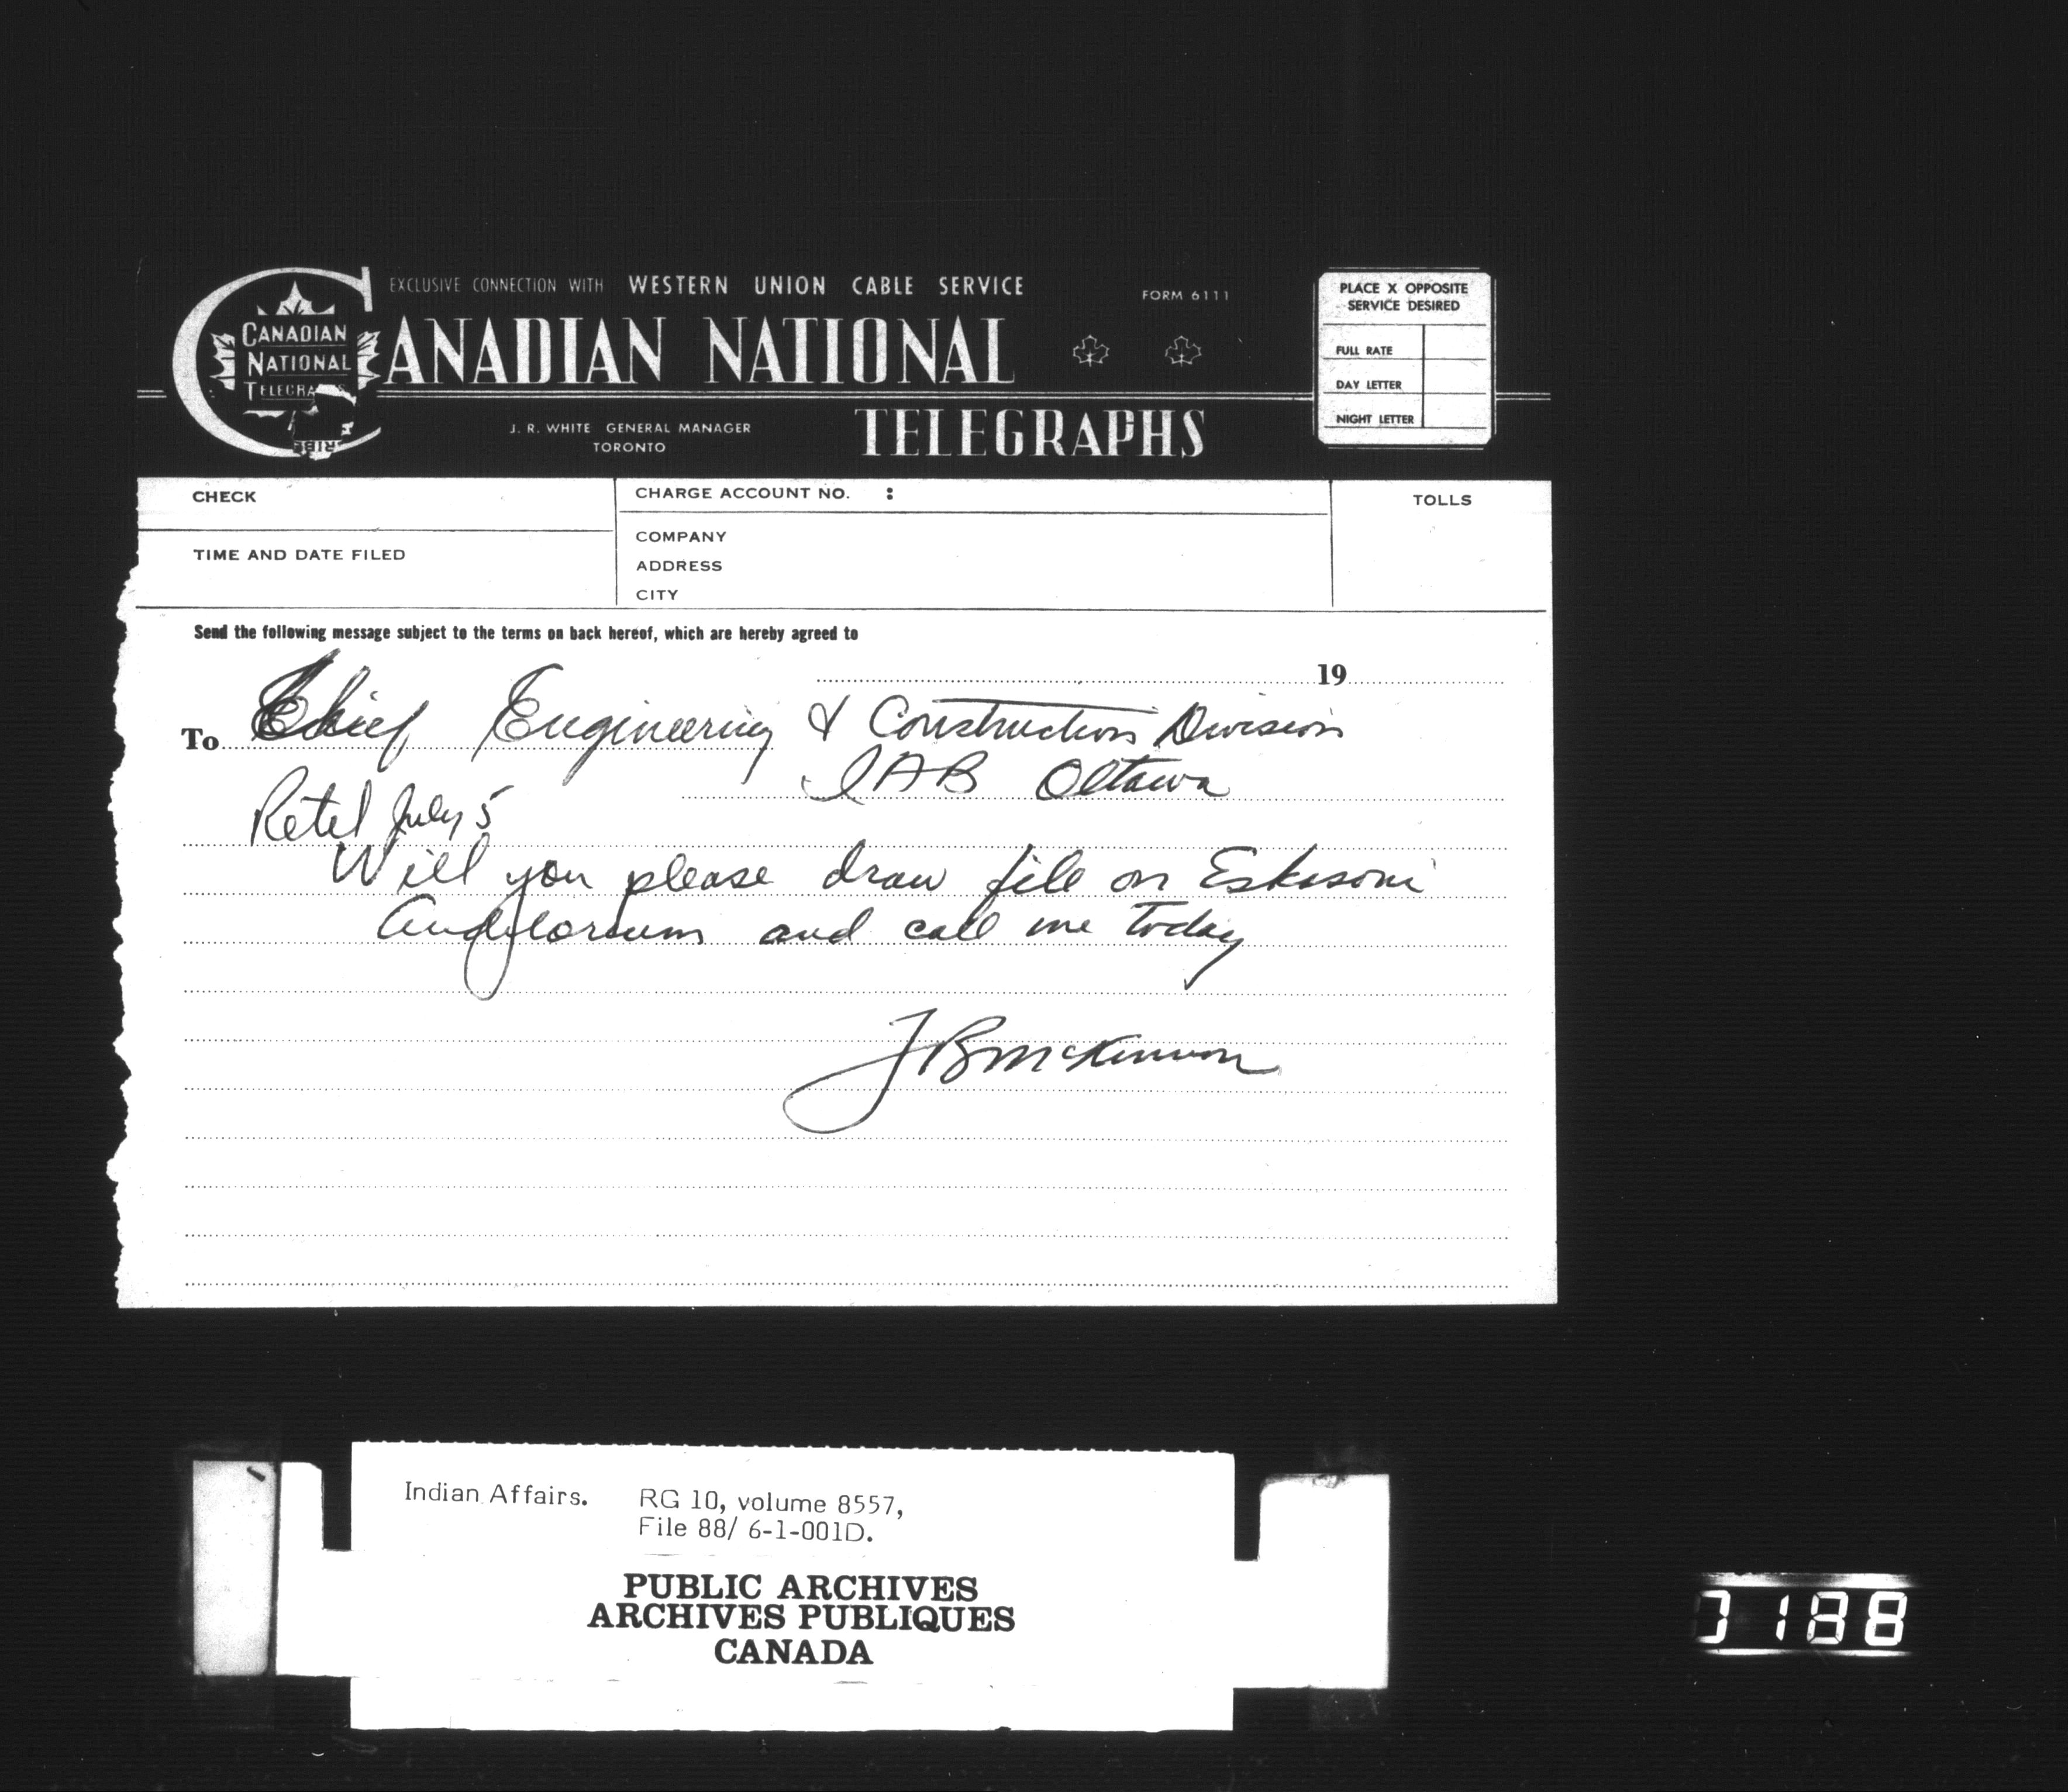 EXCLUSIVE CONNECTION WITH WESTERN UNION CABLE SERVICE
FORM 6111
CANADIAN NATIONAL
TELEGRAPHS
CANADIAN
NATIONAL
TELEGRA
J. R. WHITE GENERAL MANAGER
TORONTO
PLACE X OPPOSITE
SERVICE DESIRED
FULL RATE
DAY LETTER
NIGHT LETTER
CHECK
TIME AND DATE FILED
CHARGE ACCOUNT NO. :
COMPANY
ADDRESS
CITY
TOLLS
Send the following message subject to the terms on back hereof, which are hereby agreed to
19
To Chief Engineering & Construction Division
IAB Ottawa
Retel July 5
Will you please draw file on Eskasoni
Auditorium and call me today
J B McKinnon
Indian Affairs. RG 10, volume 8557,
File 88/ 6-1-001D.
PUBLIC ARCHIVES
ARCHIVES PUBLIQUES
CANADA
0188